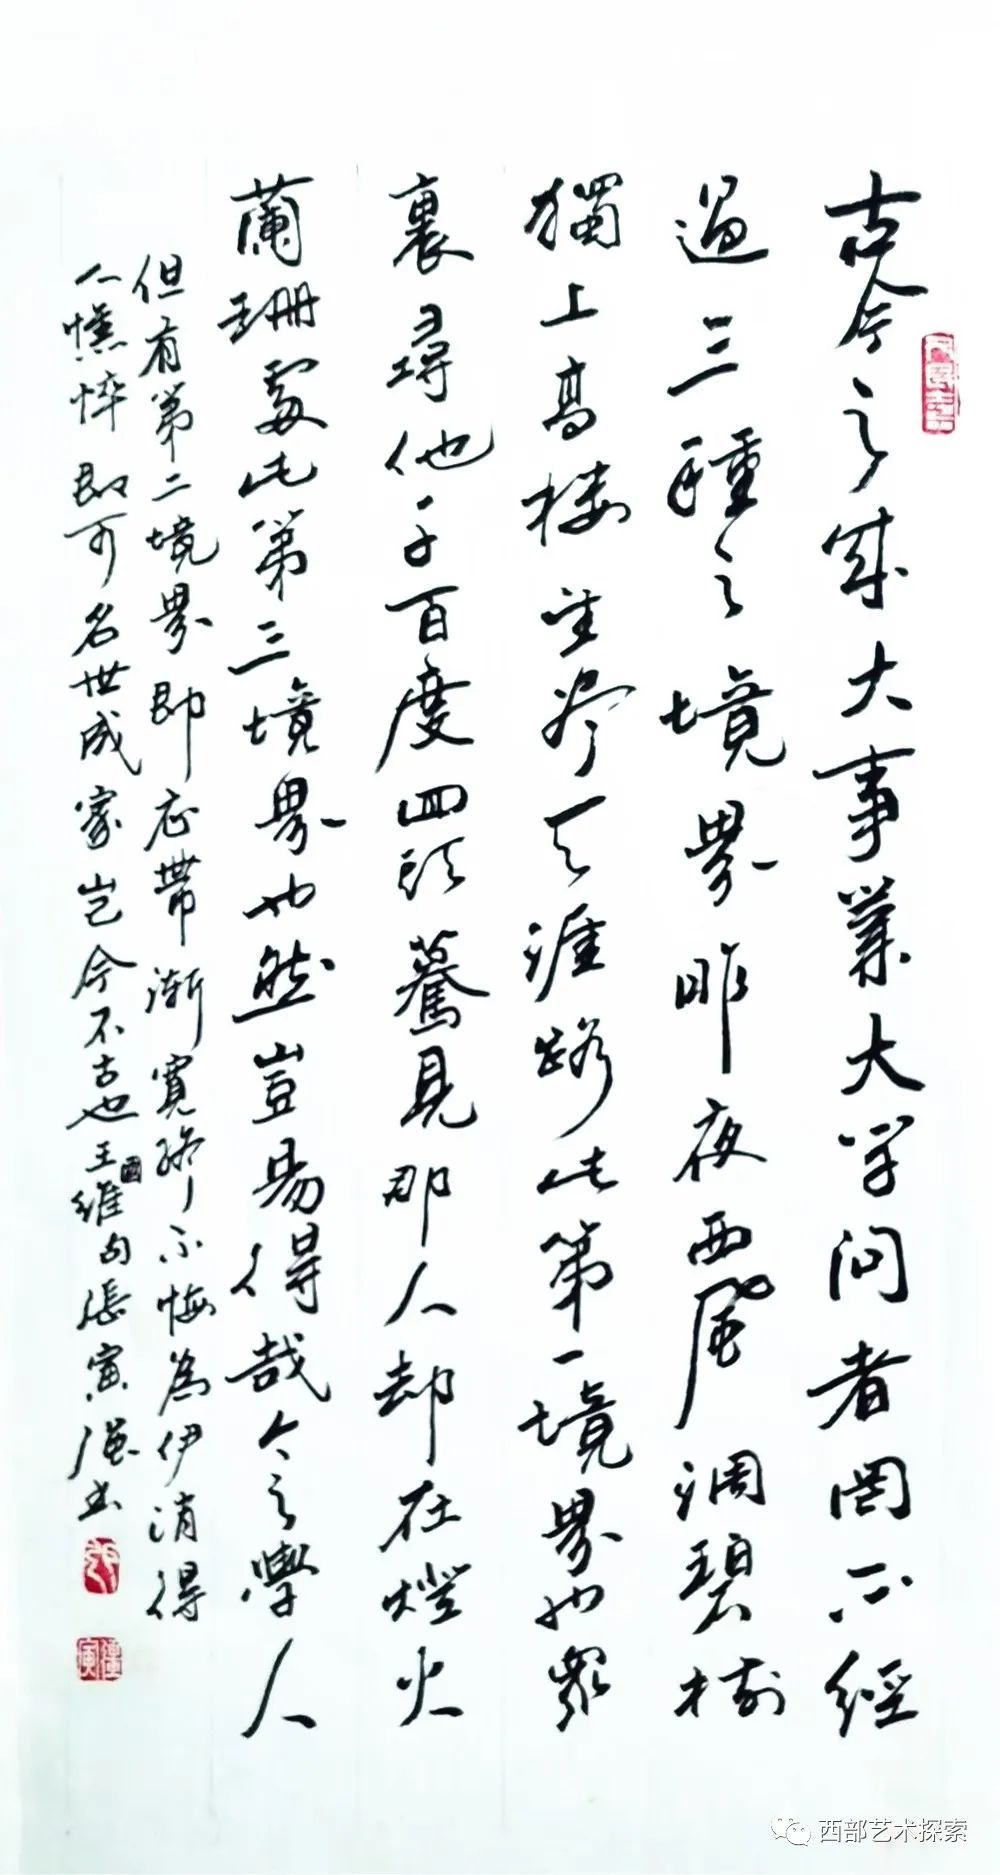 古今之成大事業大学问者罔不經
過三種之境界昨夜西風调碧樹
獨上高楼望尽天涯路此第一境界也眾
裏尋他千百度回头驀見那人却在燈火
蘭珊處此第三境界也然豈易得哉今之學人
但有第二境界即衣帶漸寬終不悔為伊消得
人憔悴即可名世成家岂今不古也王國維句張寅书
西部艺术探索